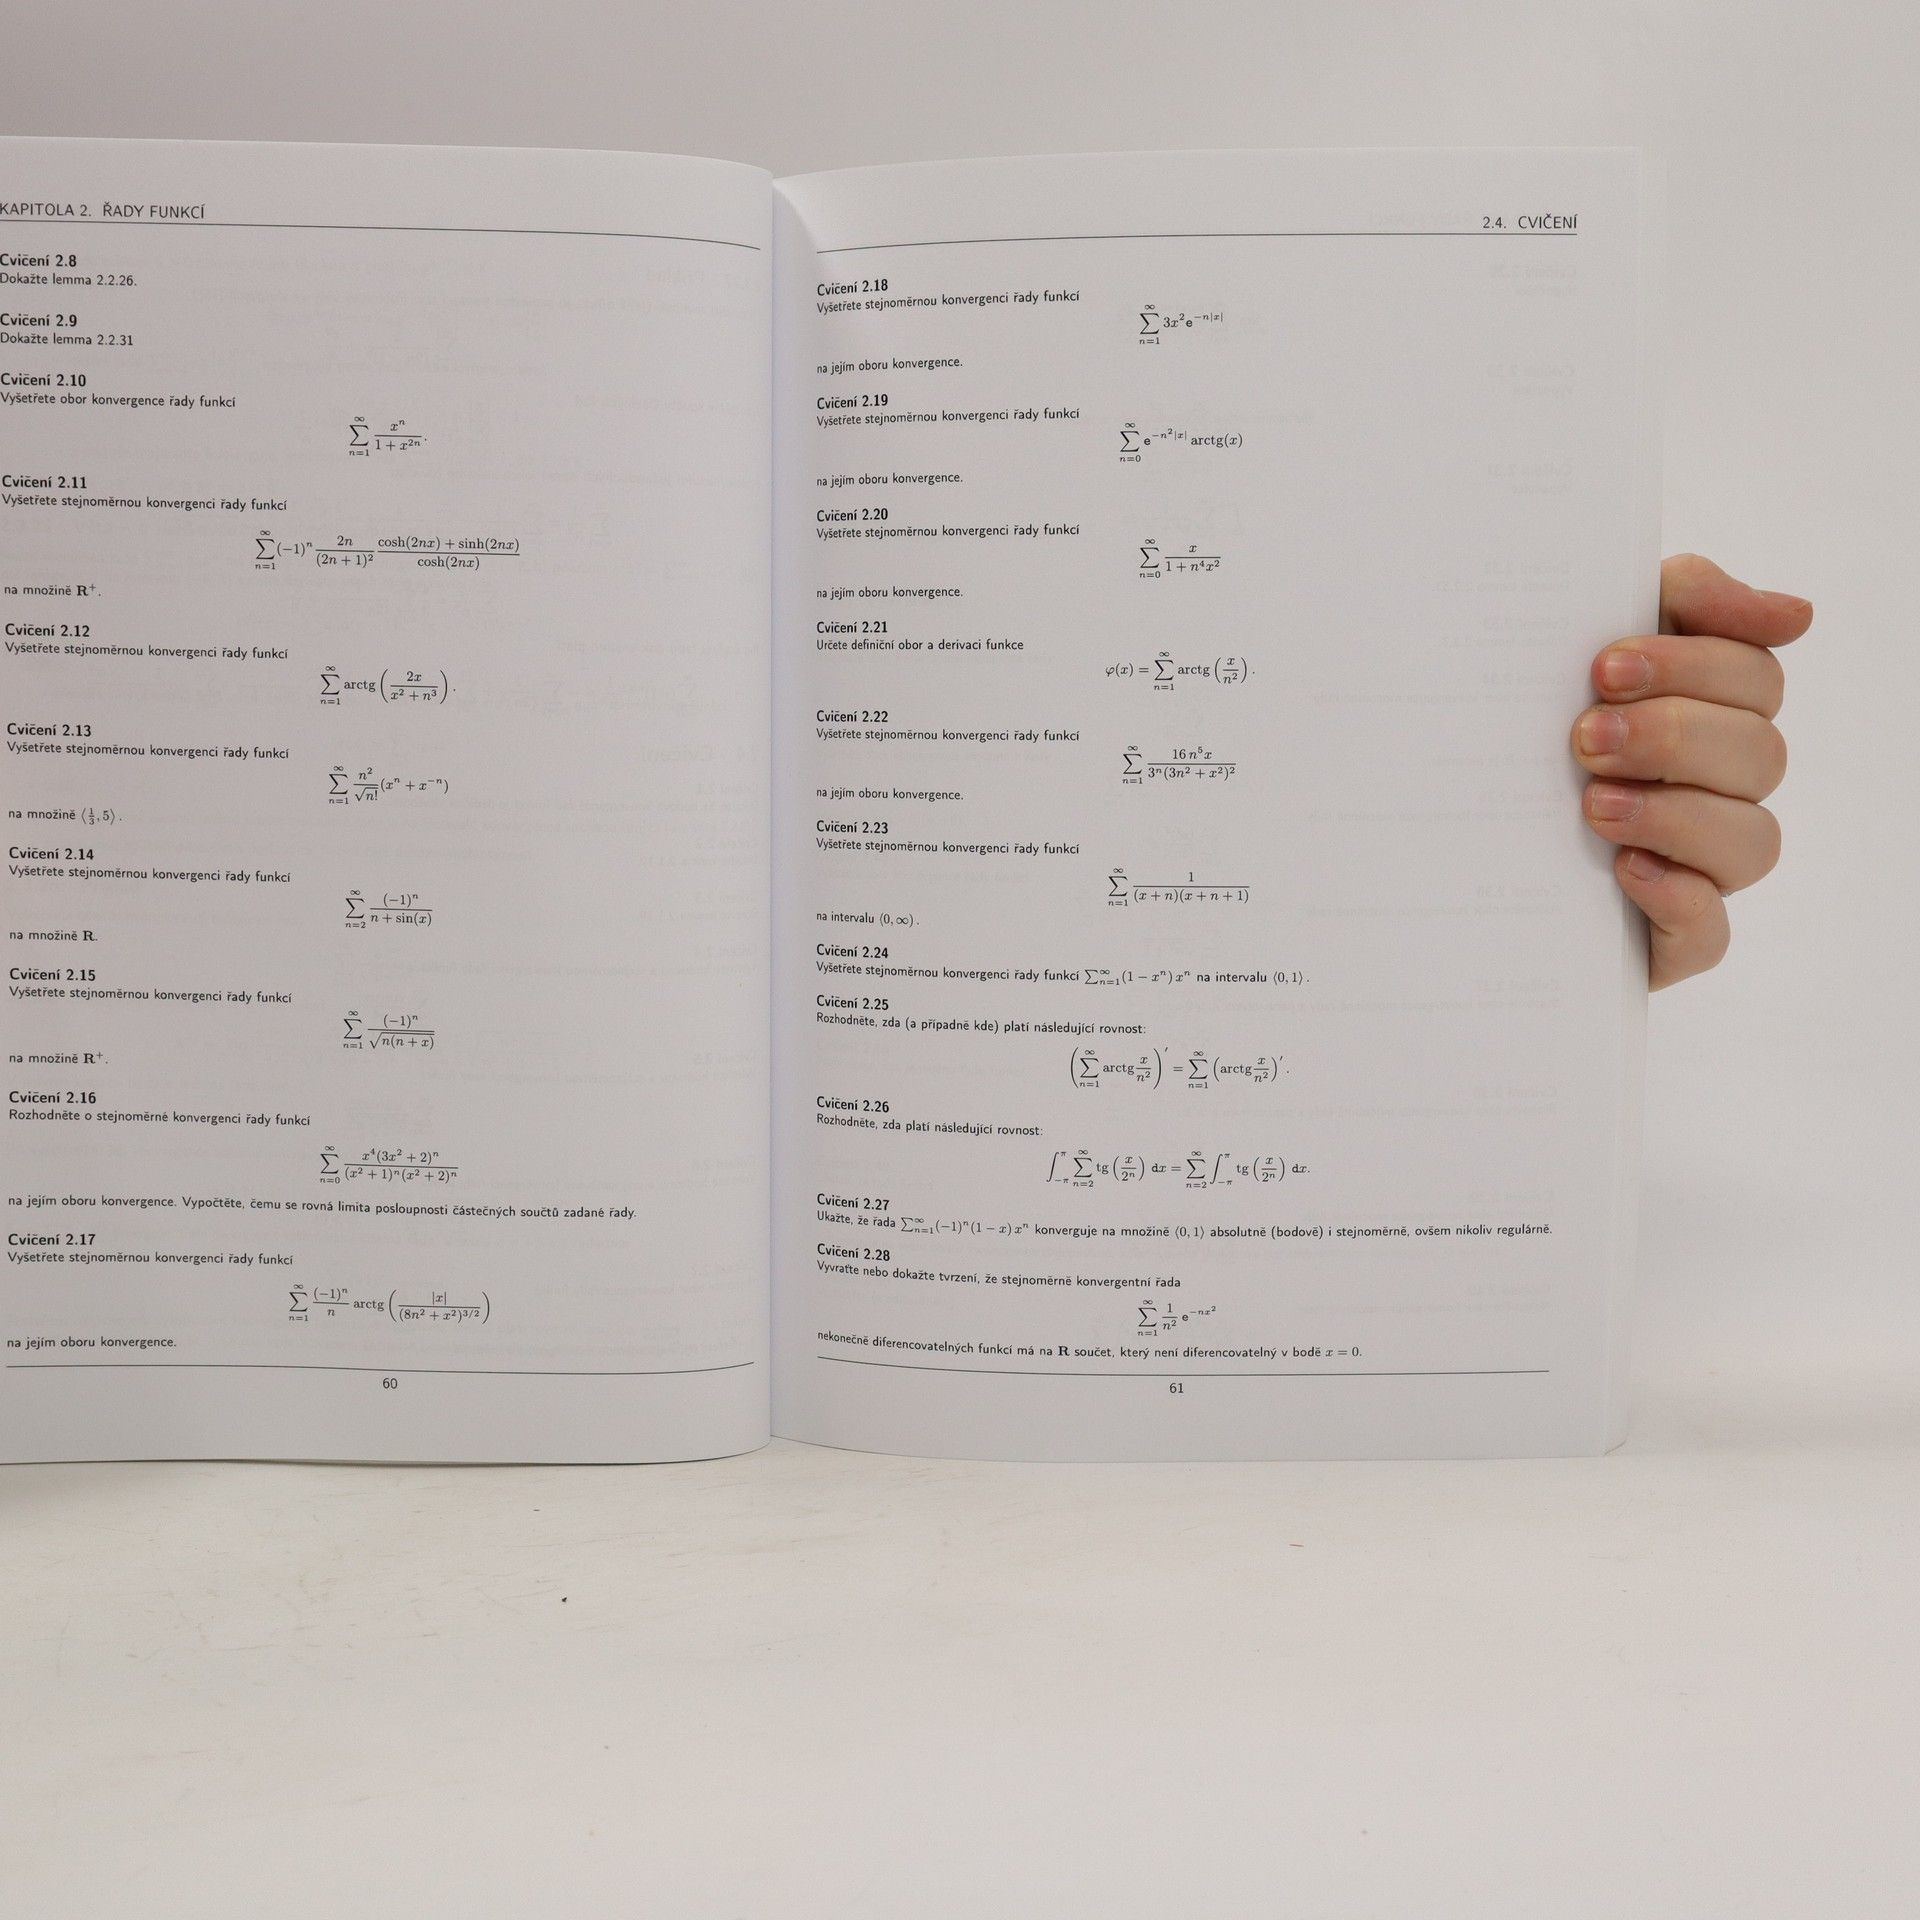 KAPITOLA 2. ŘADY FUNKCÍ
Cvičení 2.8
Dokažte lemma 2.2.26.
Cvičení 2.9
Dokažte lemma 2.2.31
Cvičení 2.10
Vyšetřete obor konvergence řady funkcí
$\sum_{n=1}^{\infty} \frac{x^n}{1+x^{2n}}.$
Cvičení 2.11
Vyšetřete stejnoměrnou konvergenci řady funkcí
$\sum_{n=1}^{\infty} (-1)^n \frac{2n}{(2n+1)^2} \frac{\cosh(2nx)+\sinh(2nx)}{\cosh(2nx)}$
na množině R⁺.
Cvičení 2.12
Vyšetřete stejnoměrnou konvergenci řady funkcí
$\sum_{n=1}^{\infty} \operatorname{arctg}\left(\frac{2x}{x^2+n^3}\right).$
Cvičení 2.13
Vyšetřete stejnoměrnou konvergenci řady funkcí
$\sum_{n=1}^{\infty} \frac{n^2}{\sqrt{n!}}(x^n+x^{-n})$
na množině $\langle \frac{1}{3}, 5 \rangle$.
Cvičení 2.14
Vyšetřete stejnoměrnou konvergenci řady funkcí
$\sum_{n=2}^{\infty} \frac{(-1)^n}{n+\sin(x)}$
na množině R.
Cvičení 2.15
Vyšetřete stejnoměrnou konvergenci řady funkcí
$\sum_{n=1}^{\infty} \frac{(-1)^n}{\sqrt{n(n+x)}}$
na množině R⁺.
Cvičení 2.16
Rozhodněte o stejnoměrné konvergenci řady funkcí
$\sum_{n=0}^{\infty} \frac{x^4(3x^2+2)^n}{(x^2+1)^n(x^2+2)^n}$
na jejím oboru konvergence. Vypočtěte, čemu se rovná limita posloupnosti částečných součtů zadané řady.
Cvičení 2.17
Vyšetřete stejnoměrnou konvergenci řady funkcí
$\sum_{n=1}^{\infty} \frac{(-1)^n}{n} \operatorname{arctg}\left(\frac{|x|}{(8n^2+x^2)^{3/2}}\right)$
na jejím oboru konvergence.
60
2.4. CVIČENÍ
Cvičení 2.18
Vyšetřete stejnoměrnou konvergenci řady funkcí
$\sum_{n=1}^{\infty} 3x^2 e^{-n|x|}$
na jejím oboru konvergence.
Cvičení 2.19
Vyšetřete stejnoměrnou konvergenci řady funkcí
$\sum_{n=0}^{\infty} e^{-n^2|x|} \operatorname{arctg}(x)$
na jejím oboru konvergence.
Cvičení 2.20
Vyšetřete stejnoměrnou konvergenci řady funkcí
$\sum_{n=0}^{\infty} \frac{x}{1+n^4x^2}$
na jejím oboru konvergence.
Cvičení 2.21
Určete definiční obor a derivaci funkce
$\varphi(x) = \sum_{n=1}^{\infty} \operatorname{arctg}\left(\frac{x}{n^2}\right).$
Cvičení 2.22
Vyšetřete stejnoměrnou konvergenci řady funkcí
$\sum_{n=1}^{\infty} \frac{16\,n^5x}{3^n(3n^2+x^2)^2}$
na jejím oboru konvergence.
Cvičení 2.23
Vyšetřete stejnoměrnou konvergenci řady funkcí
$\sum_{n=1}^{\infty} \frac{1}{(x+n)(x+n+1)}$
na intervalu $\langle 0, \infty)$.
Cvičení 2.24
Vyšetřete stejnoměrnou konvergenci řady funkcí $\sum_{n=1}^{\infty}(1-x^n)\,x^n$ na intervalu $\langle 0, 1 \rangle$.
Cvičení 2.25
Rozhodněte, zda (a případně kde) platí následující rovnost:
$\left(\sum_{n=1}^{\infty} \operatorname{arctg}\frac{x}{n^2}\right)' = \sum_{n=1}^{\infty} \left(\operatorname{arctg}\frac{x}{n^2}\right)'.$
Cvičení 2.26
Rozhodněte, zda platí následující rovnost:
$\int_{-\pi}^{\pi} \sum_{n=2}^{\infty} \operatorname{tg}\left(\frac{x}{2^n}\right) dx = \sum_{n=2}^{\infty} \int_{-\pi}^{\pi} \operatorname{tg}\left(\frac{x}{2^n}\right) dx.$
Cvičení 2.27
Ukažte, že řada $\sum_{n=1}^{\infty}(-1)^n(1-x)\,x^n$ konverguje na množině $\langle 0, 1 \rangle$ absolutně (bodově) i stejnoměrně, ovšem nikoliv regulárně.
Cvičení 2.28
Vyvraťte nebo dokažte tvrzení, že stejnoměrně konvergentní řada
$\sum_{n=1}^{\infty} \frac{1}{n^2} e^{-nx^2}$
nekonečně diferencovatelných funkcí má na R součet, který není diferencovatelný v bodě $x = 0$.
61